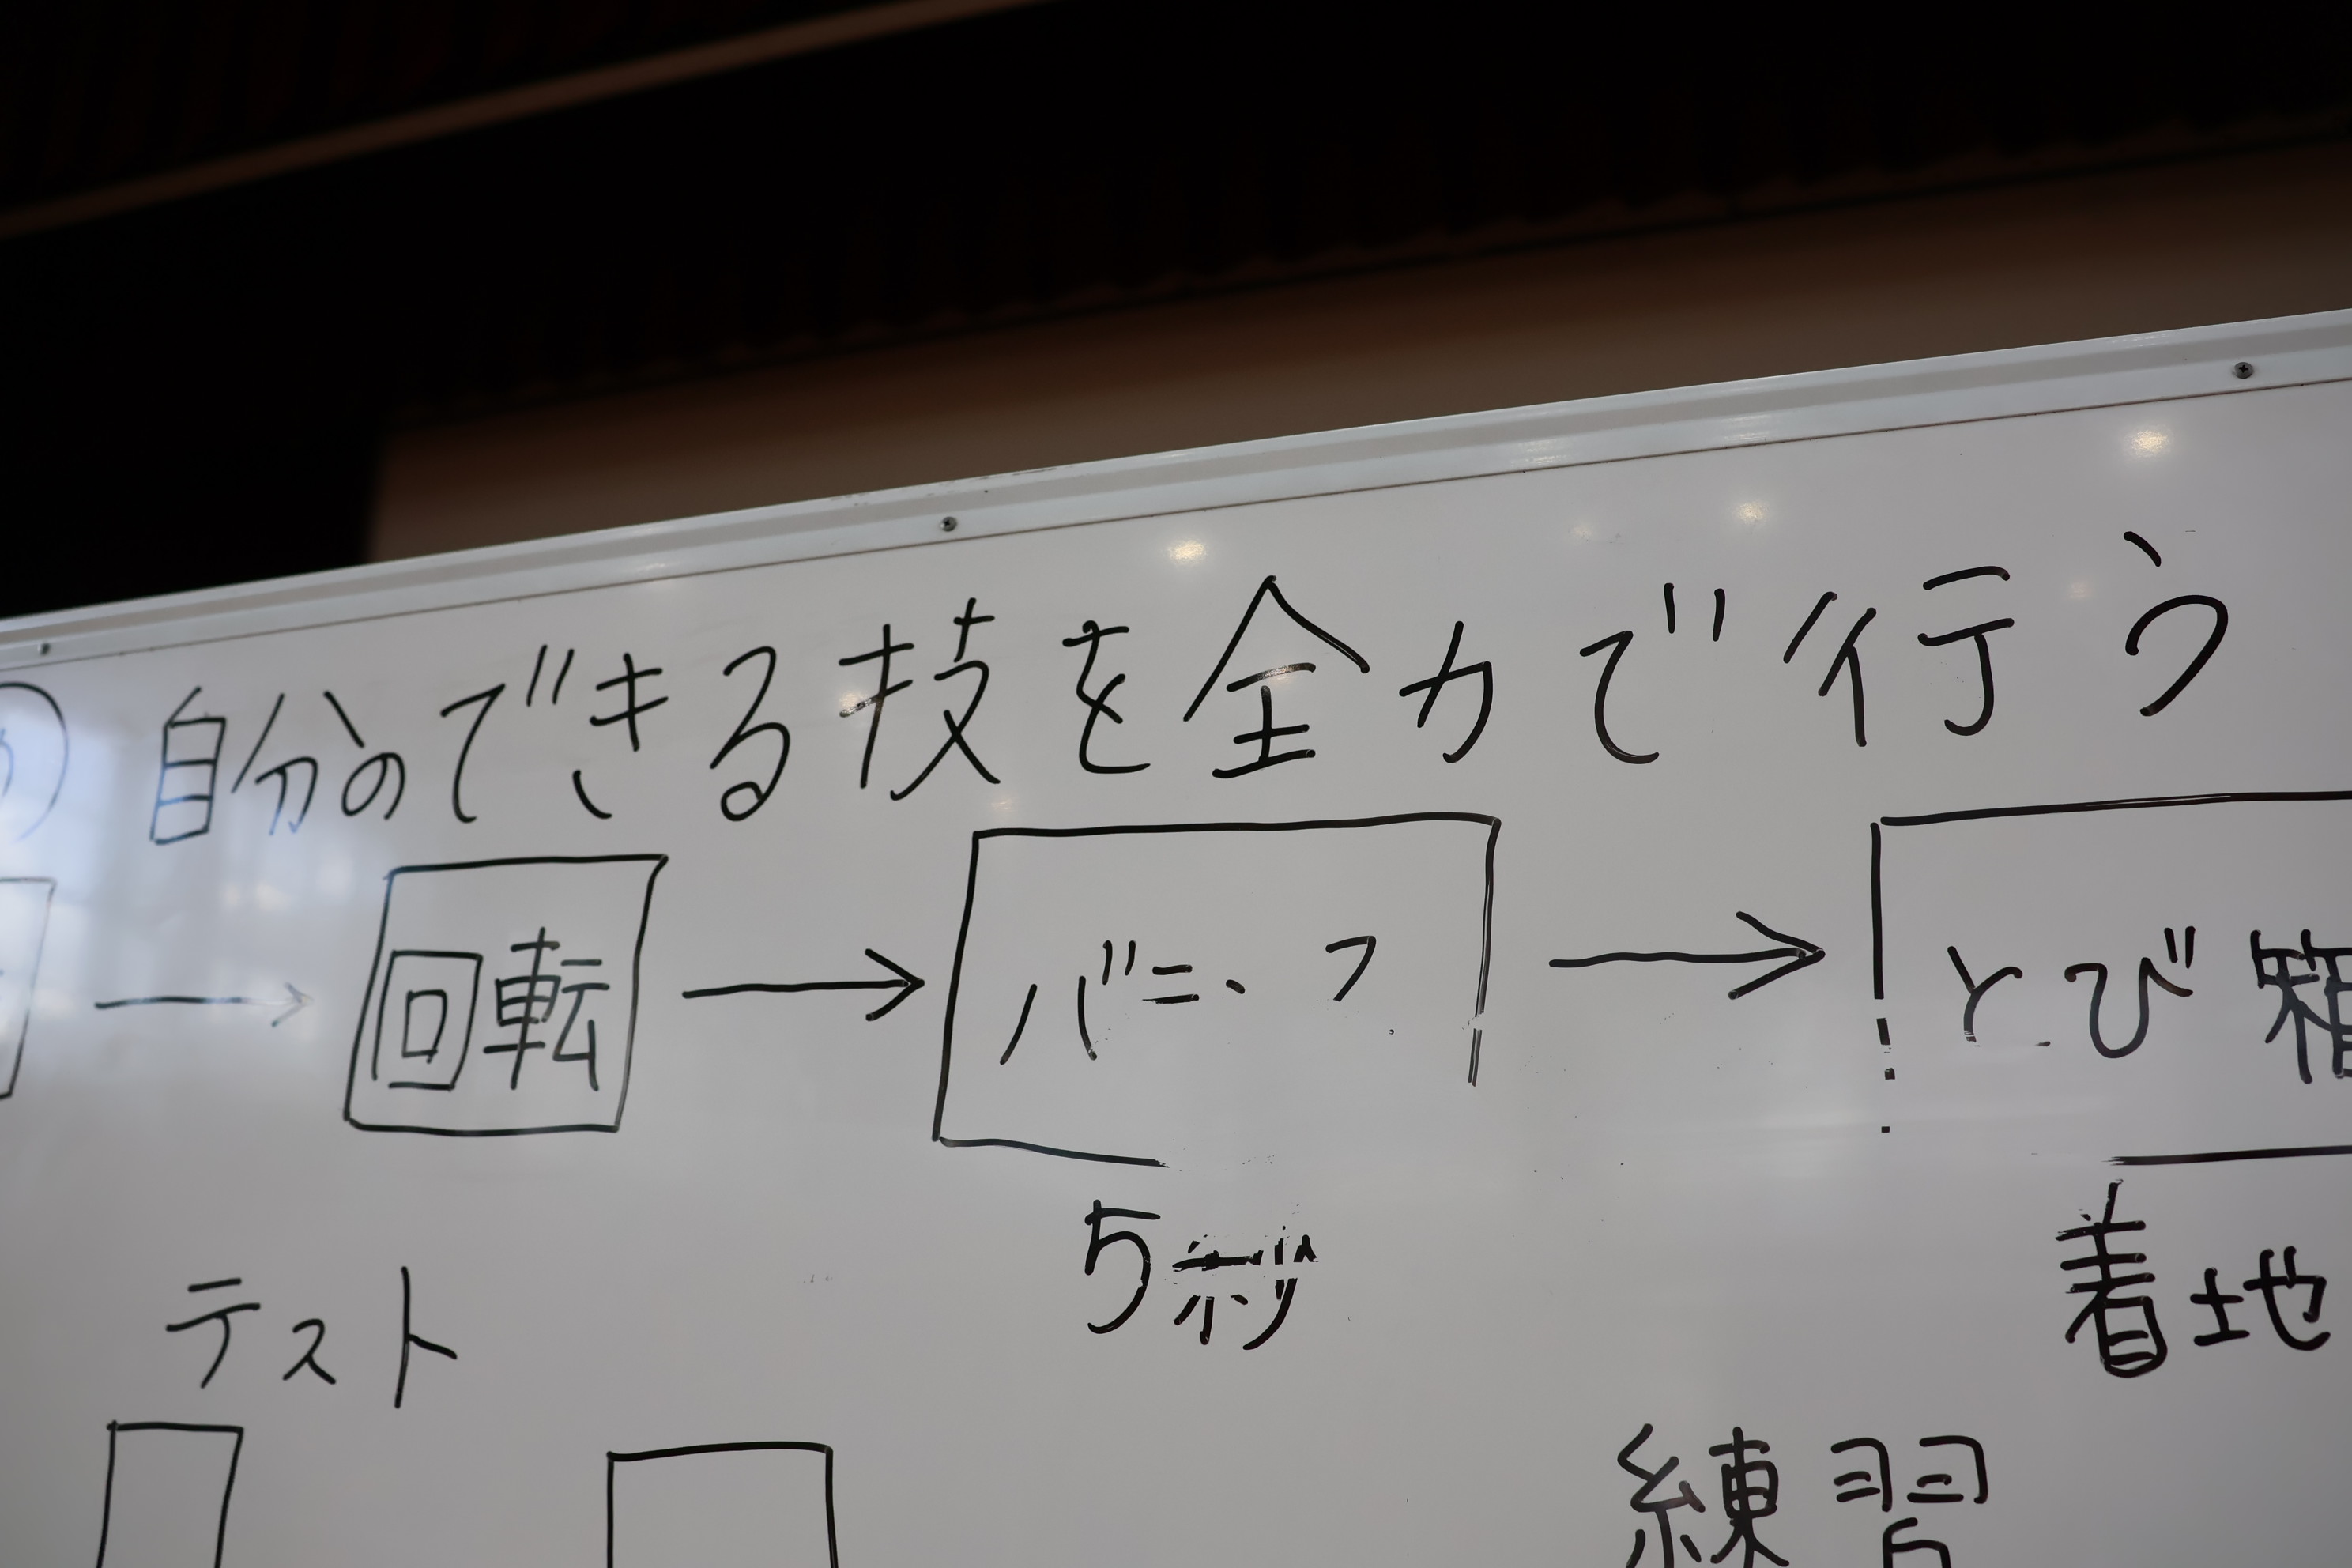 自分のできる技を全力で行う
→ 回転 → → とび箱
5分
着地
テスト
練習